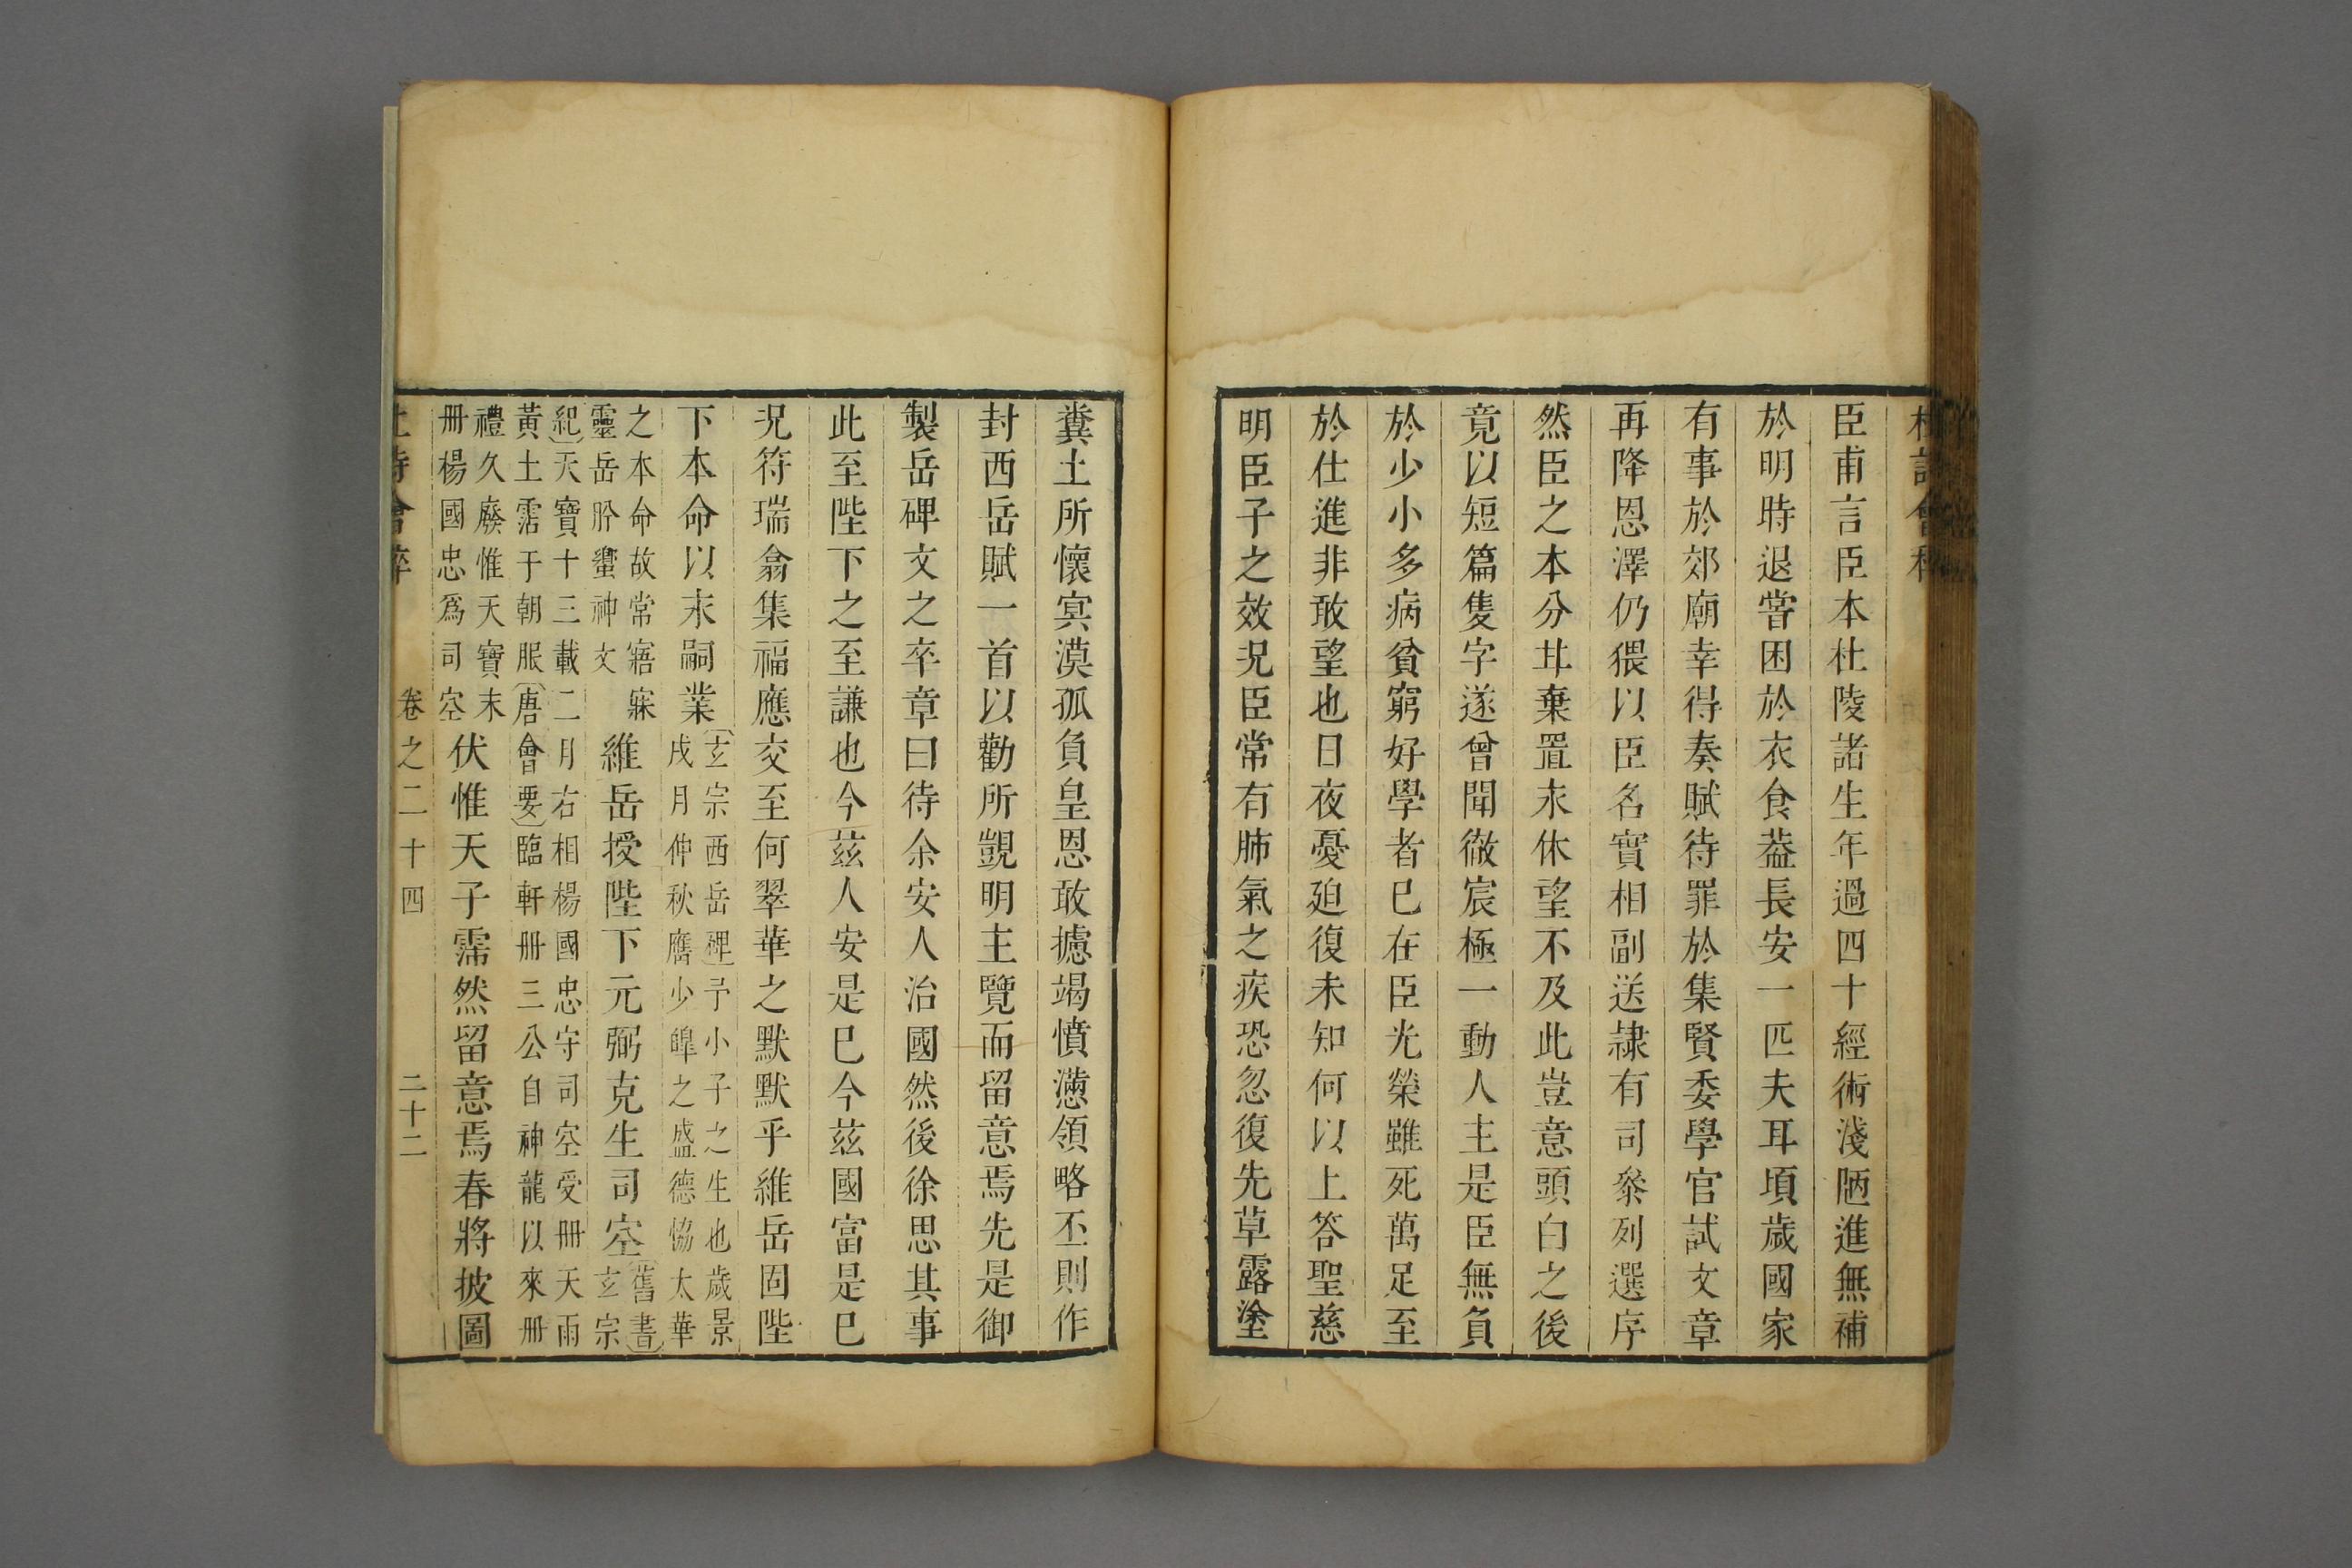 臣甫言臣本杜陵諸生年過四十經術淺陋進無補
於明時退嘗困於衣食葢長安一匹夫耳頃歲國家
有事於郊廟幸得奏賦待罪於集賢委學官試文章
再降恩澤仍猥以臣名實相副送隸有司參列選序
然臣之本分甘棄置永休望不及此豈意頭白之後
竟以短篇隻字遂曾聞徹宸極一動人主是臣無負
於少小多病貧窮好學者已在臣光榮雖死萬足至
於仕進非敢望也日夜憂迫復未知何以上答聖慈
明臣子之效況臣常有肺氣之疾恐忽復先草露塗
糞土所懷冥漠孤負皇恩敢攄竭憤懣領略丕則作
封西岳賦一首以勸所覬明主覽而留意焉先是御
製岳碑文之卒章曰待余安人治國然後徐思其事
此至陛下之至謙也今茲人安是已今茲國富是已
況符瑞翕集福應交至何翠華之默默乎維岳固陛
下本命以永嗣業
〔玄宗西岳碑〕予小子之生也歲景
戌月仲秋膺少皥之盛德恊太華
之本命故常寤寐
靈岳肸蠁神交
維岳授陛下元弼克生司空
〔舊書〕
玄宗
紀〕天寶十三載二月右相楊國忠守司空受冊天雨
黃土霑于朝服〔唐會要〕臨軒冊三公自神龍以來冊
禮久廢惟天寶末
冊楊國忠爲司空
伏惟天子霈然留意焉春將披圖
卷之二十四
二十二